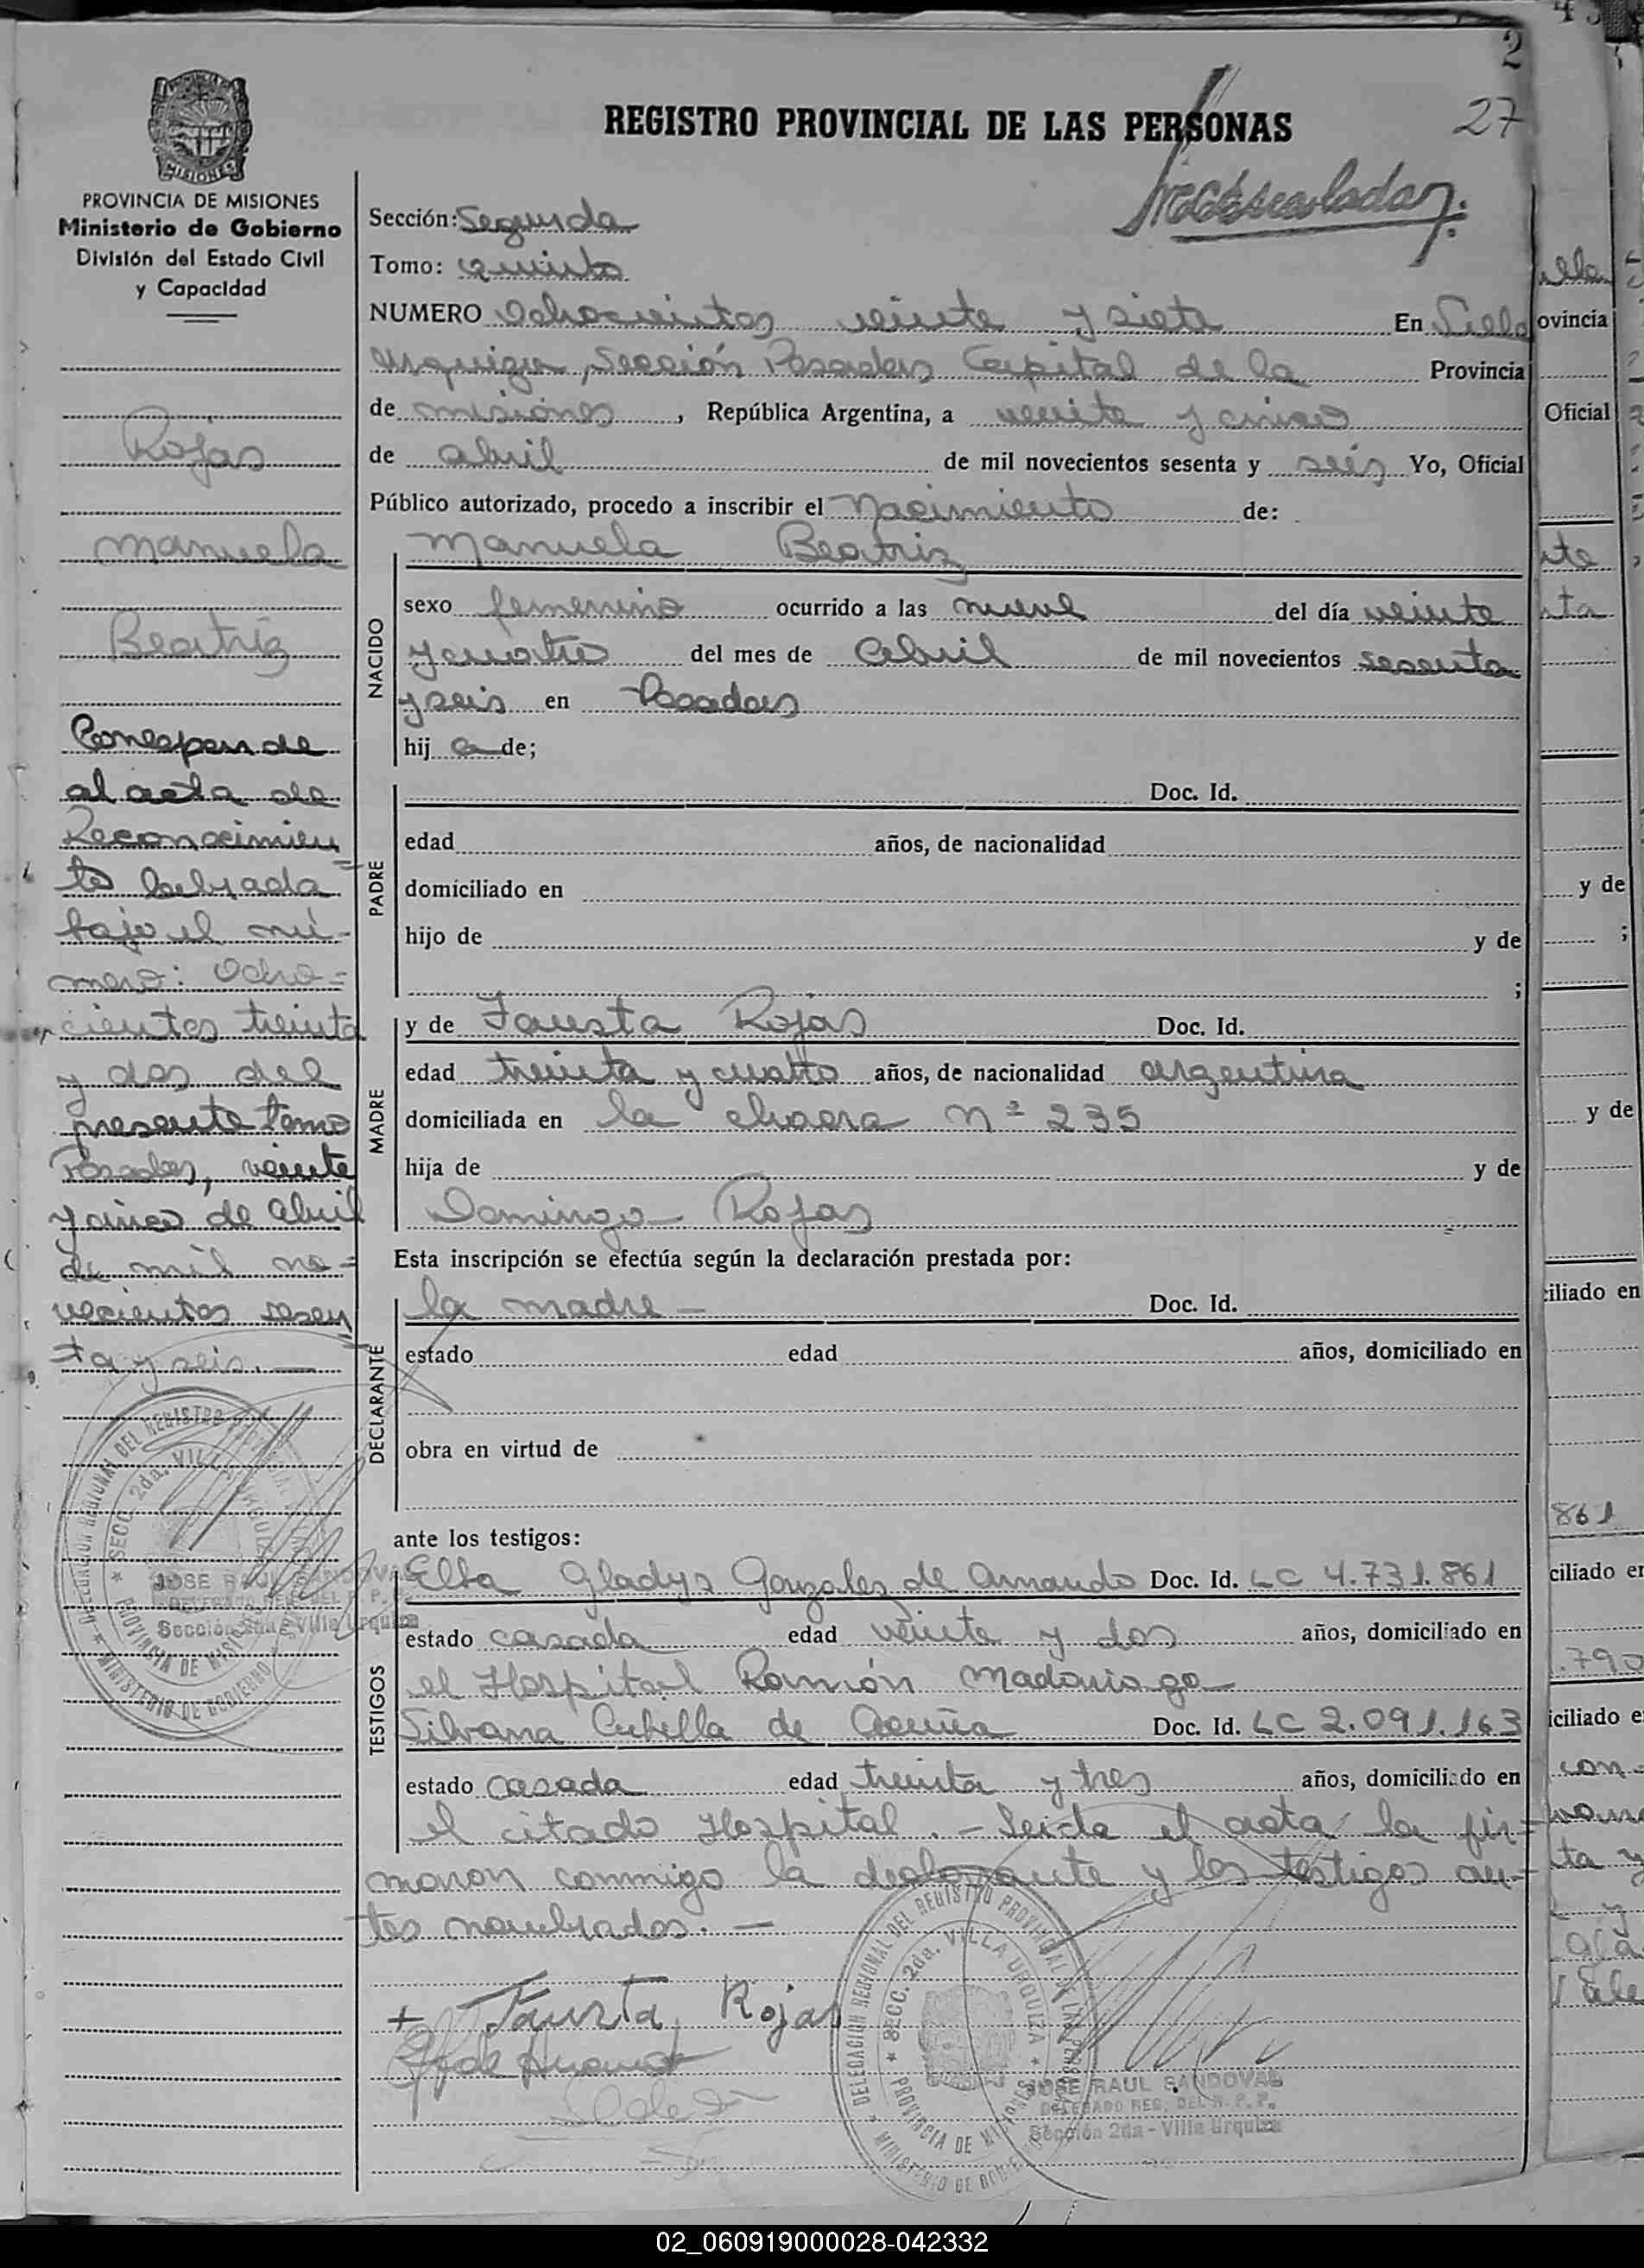 2
27
REGISTRO PROVINCIAL DE LAS PERSONAS
MISIONES
PROVINCIA DE MISIONES
Ministerio de Gobierno
División del Estado Civil
y Capacidad
Rojas
Manuela
Beatriz
Corresponde
al acta de
Reconocimien
to labrada
bajo el nú-
mero: Ocho=
cientos treinta
y dos del
presente tomo
Posadas, veinte
y cinco de abril
de mil no=
vecientos sesen
ta y seis.—
DELEGACION REGIONAL DEL REGISTRO
SECC. 2da. VILLA URQUIZA
PROVINCIA DE MISIONES
MINISTERIO DE GOBIERNO
JOSE RAUL SANDOVAL
Sección 2da - Villa Urquiza
Sección: Segunda
Tomo: Quinto
NUMERO Ochocientos veinte y siete En Villa
Urquiza, Sección Posadas Capital de la Provincia
de Misiones, República Argentina, a veinte y cinco
de abril de mil novecientos sesenta y seis Yo, Oficial
Público autorizado, procedo a inscribir el Nacimiento de:
NACIDO
Manuela Beatriz
sexo femenino ocurrido a las nueve del día veinte
y cuatro del mes de Abril de mil novecientos sesenta
y seis en Posadas
hij a de;
PADRE
Doc. Id.
edad años, de nacionalidad
domiciliado en
hijo de y de
;
MADRE
y de Fausta Rojas Doc. Id.
edad treinta y cuatro años, de nacionalidad argentina
domiciliada en la chacra Nº 235
hija de y de
Domingo Rojas
Esta inscripción se efectúa según la declaración prestada por:
DECLARANTE
la madre — Doc. Id.
estado edad años, domiciliado en
obra en virtud de
ante los testigos:
TESTIGOS
Elba Gladys Gonzales de Armando Doc. Id. LC 4.731.861
estado casada edad veinte y dos años, domiciliado en
el Hospital Ramón Madariaga
Silvana Cubilla de Acuña Doc. Id. LC 2.091.163
estado casada edad treinta y tres años, domiciliado en
el citado Hospital.— Leida el acta la fir=
maron conmigo la declarante y los testigos an-
tes nombrados.—
+ Fausta Rojas
DELEGACION REGIONAL DEL REGISTRO PROVINCIAL DE LAS PERSONAS
SECC. 2da. VILLA URQUIZA
PROVINCIA DE MISIONES
MINISTERIO DE GOBIERNO
JOSE RAUL SANDOVAL
DELEGADO REG. DEL R. P. P.
Sección 2da - Villa Urquiza
ovincia
Oficial
y de
;
y de
ciliado en
861
ciliado en
.790
iciliado en
02_060919000028-042332